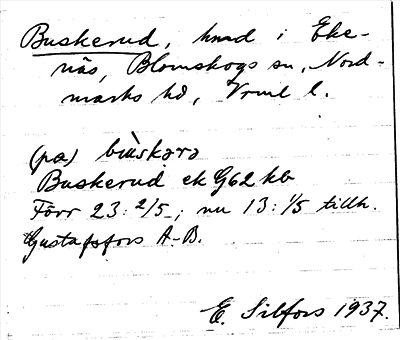 Buskerud, hmd i Eke-
näs, Blomskogs sn, Nord-
marks hd, Vrml l.
(pa) bùskərə
Buskerud ek G62 kb
Förr 23: 2/5; nu 13: 1/5 tillh.
Gustafsfors A-B.
E. Silfors 1937.